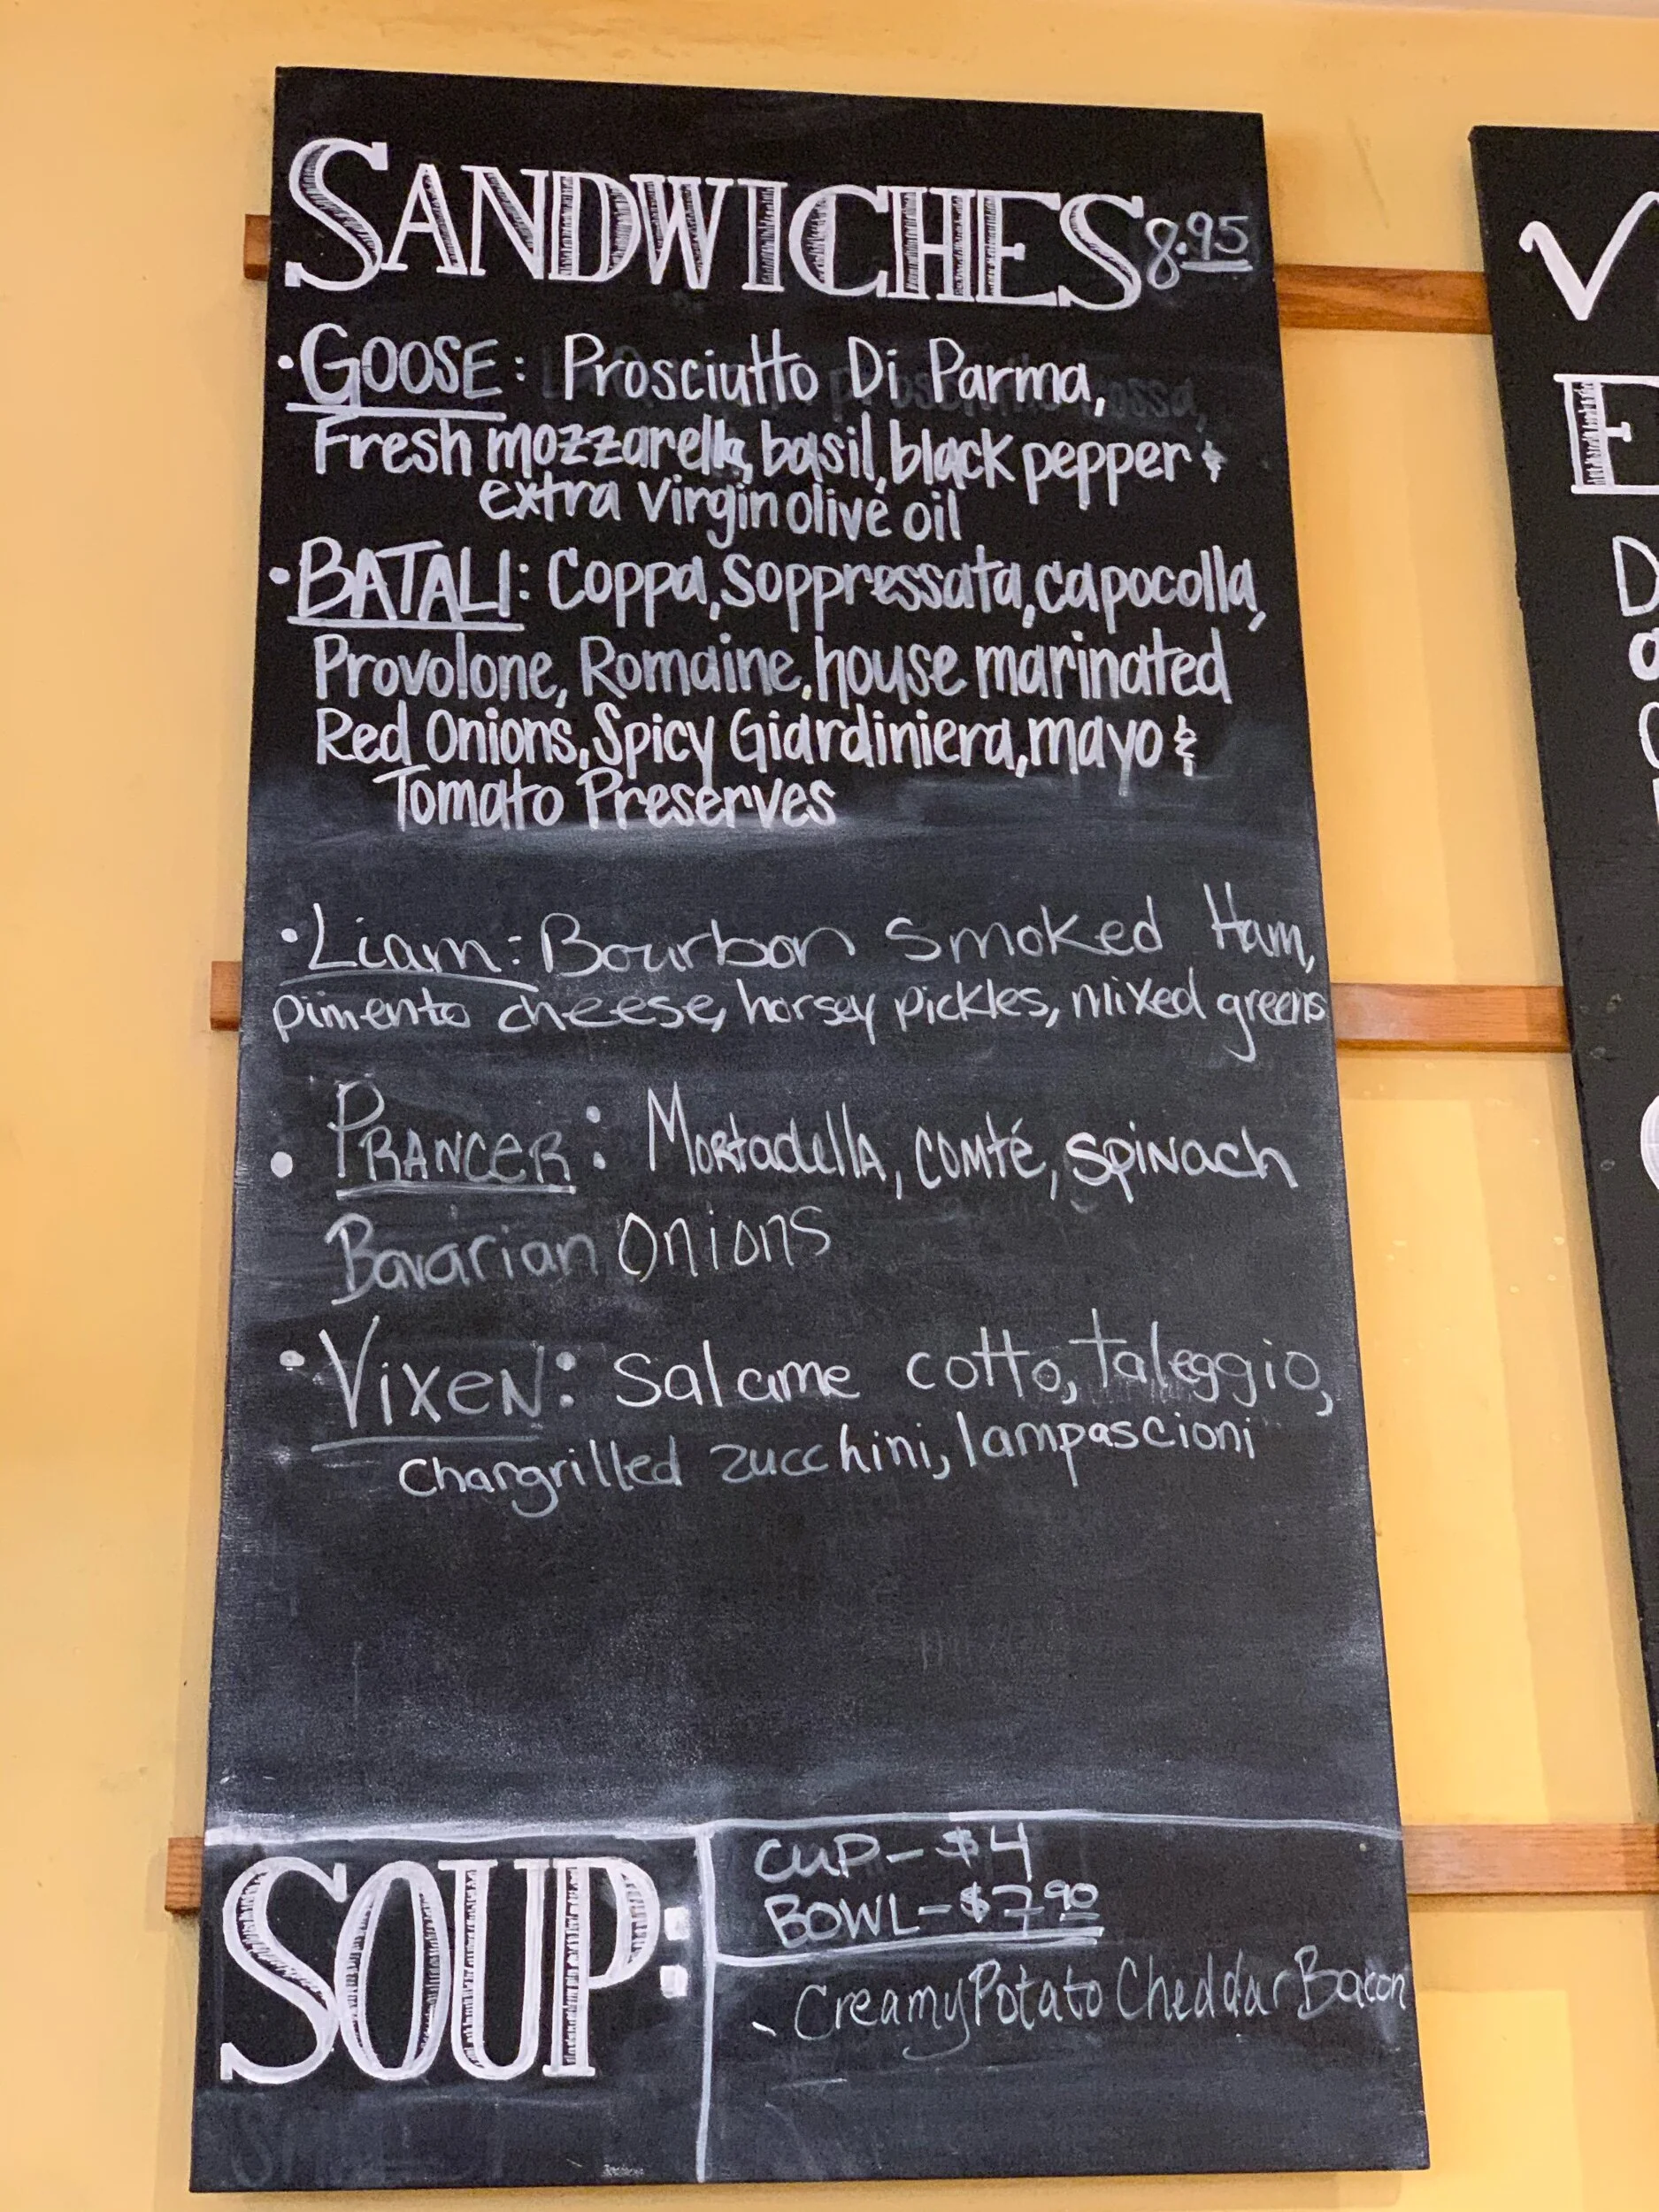 SANDWICHES 8.95
• GOOSE: Prosciutto Di Parma,
Fresh mozzarella, basil, black pepper &
extra virgin olive oil
• BATALI: Coppa, Soppressata, capocolla,
Provolone, Romaine, house marinated
Red Onions, Spicy Giardiniera, mayo &
Tomato Preserves
• Liam: Bourbon smoked Ham,
pimento cheese, horsey pickles, mixed greens
• PRANCER: Mortadella, comté, spinach
Bavarian Onions
• Vixen: Salame cotto, taleggio,
chargrilled zucchini, lampascioni
SOUP:
CUP - $4
BOWL - $7.90
- Creamy Potato Cheddar Bacon